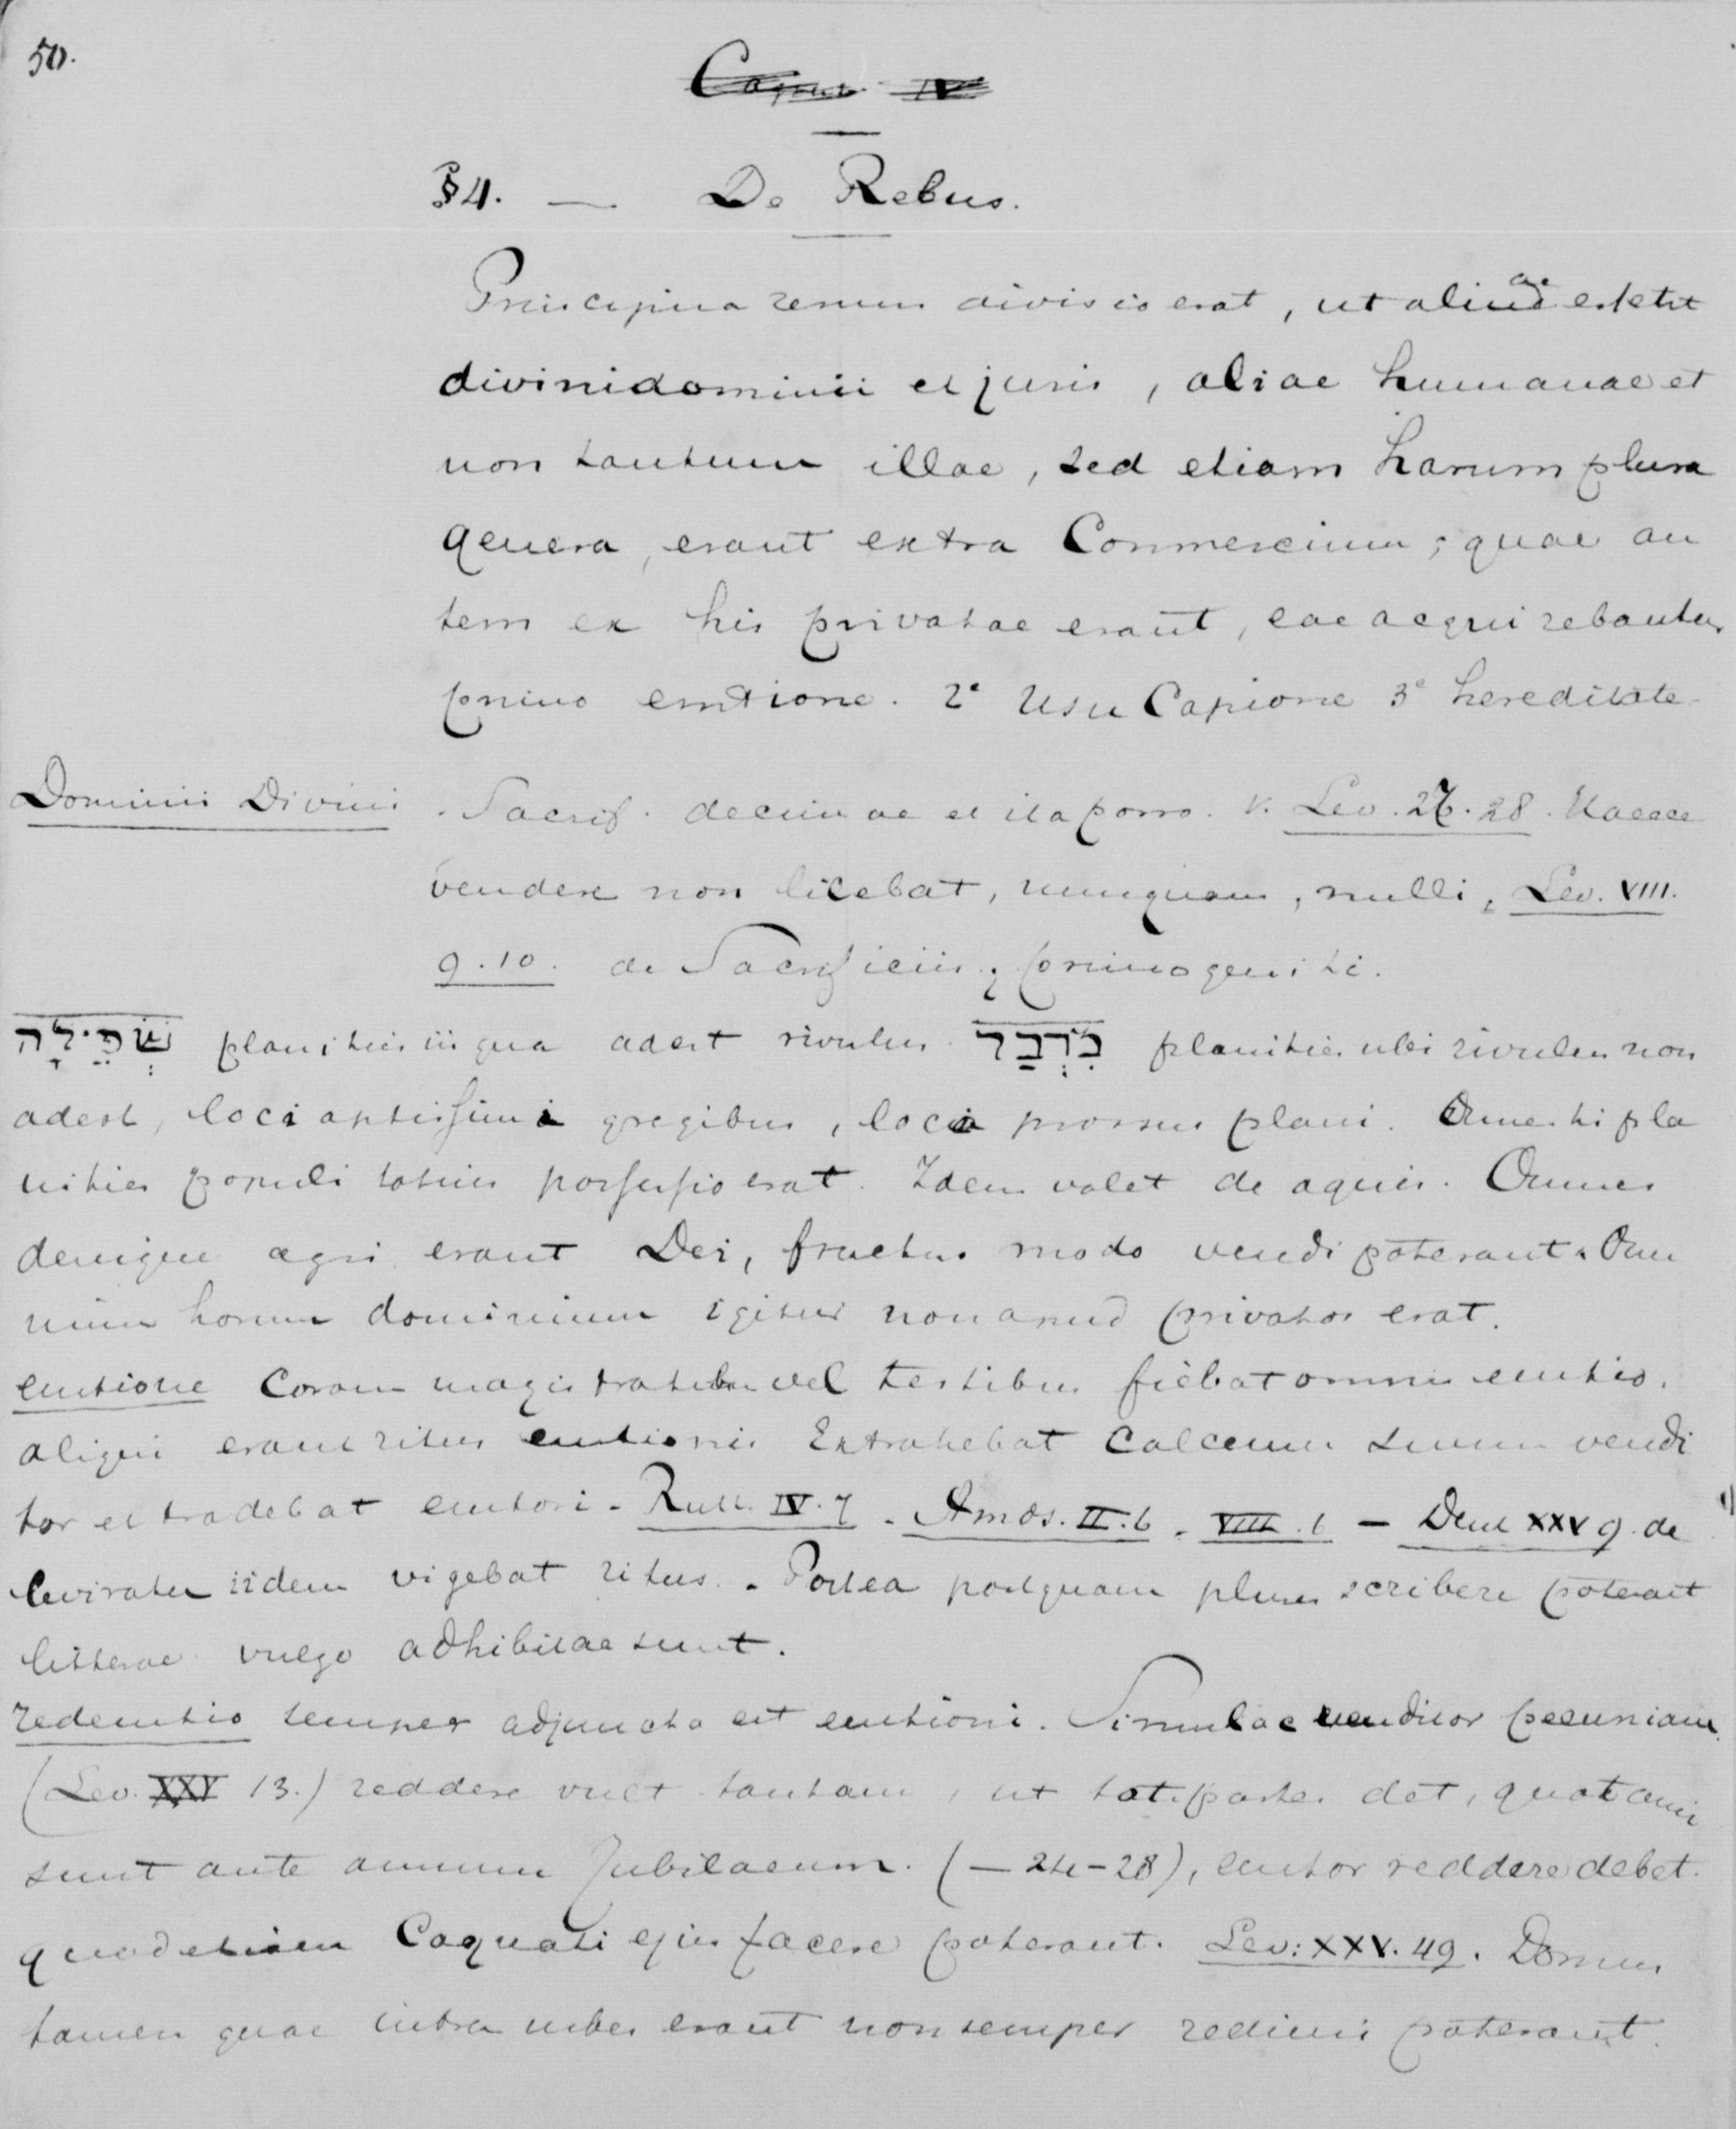 50.
Caput IV
§4. — De Rebus.
Principua rerum divisio erat, ut aliae essent
divini dominii et juris, aliae humanae et
non tantum illae, sed etiam harum plura
genera, erant extra Commercium; quae au
tem ex his privatae erant, eae acquirebantur
primo emtione. 2° Usu Capione 3° hereditate
Dominii Divini . Sacrif. decimae et ita porro. V. Lev. 27.28.
vendere non licebat, nunquam, nulli, Lev. VIII.
9.10. de Sacrificiis; primogeniti.
שְׁפֵילָה planities in qua adest rivulus מִדְבַּר planities ubi rivulus non
adest, loci aptissimi gregibus, loca prorsus plani. Omnes hi pla
nities populi totius possessio erat. Idem valet de aquis. Omnes
denique agri erant Dei, fructus modo vendi poterant. Om
nium horum dominium igitur non apud privatos erat.
emtione Coram magistratibus vel testibus fiebat omnis emtio.
aliqui erant ritus emtionis Extrahebat Calceum suum vendi
tor et tradebat emtori - Ruth. IV. 7 - Amos. II. 6 - VIII. 6 - Deut XXV 9. de
leviratu iidem vigebat ritus. - Postea postquam plures scribere poterant
litterae vulgo adhibitae sunt.
redemtio semper adjuncta est emtioni. Simulac venditor pecuniam
(Lev. XXV 13.) reddere vult tantam, ut tot partes det, quot anni
sunt ante annum Jubilaeum. (— 24-28), emtor reddere debet.
quod etiam Cognati ejus facere poterant. Lev: XXV. 49. Domus
tamen quae intra urbes erant non semper redimi poterant.